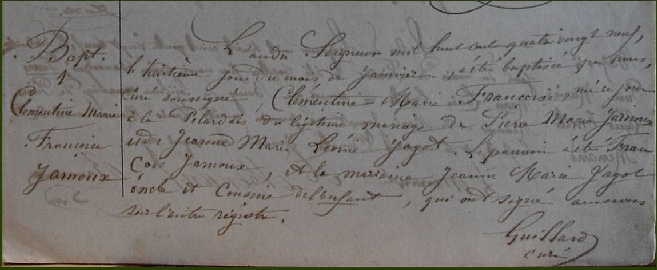 Bapt.
1
Clementine Marie
Françoise
Jamoux
L'an du Seigneur mil huit cent quatre vingt neuf,
le huitième jour du mois de Janvier, a été baptisée par nous,
curé soussigné Clémentine Marie Françoise née ce jour
à la du légitime mariage de Pierre Marie Jamoux
et de Jeanne Marie Léonie Jagot. Le parrain a été Fran
çois Jamoux, et la marraine Jeanne Marie Jagot
oncle et cousine de l'enfant, qui ont signé
sur l'autre registre.
Guillard
curé